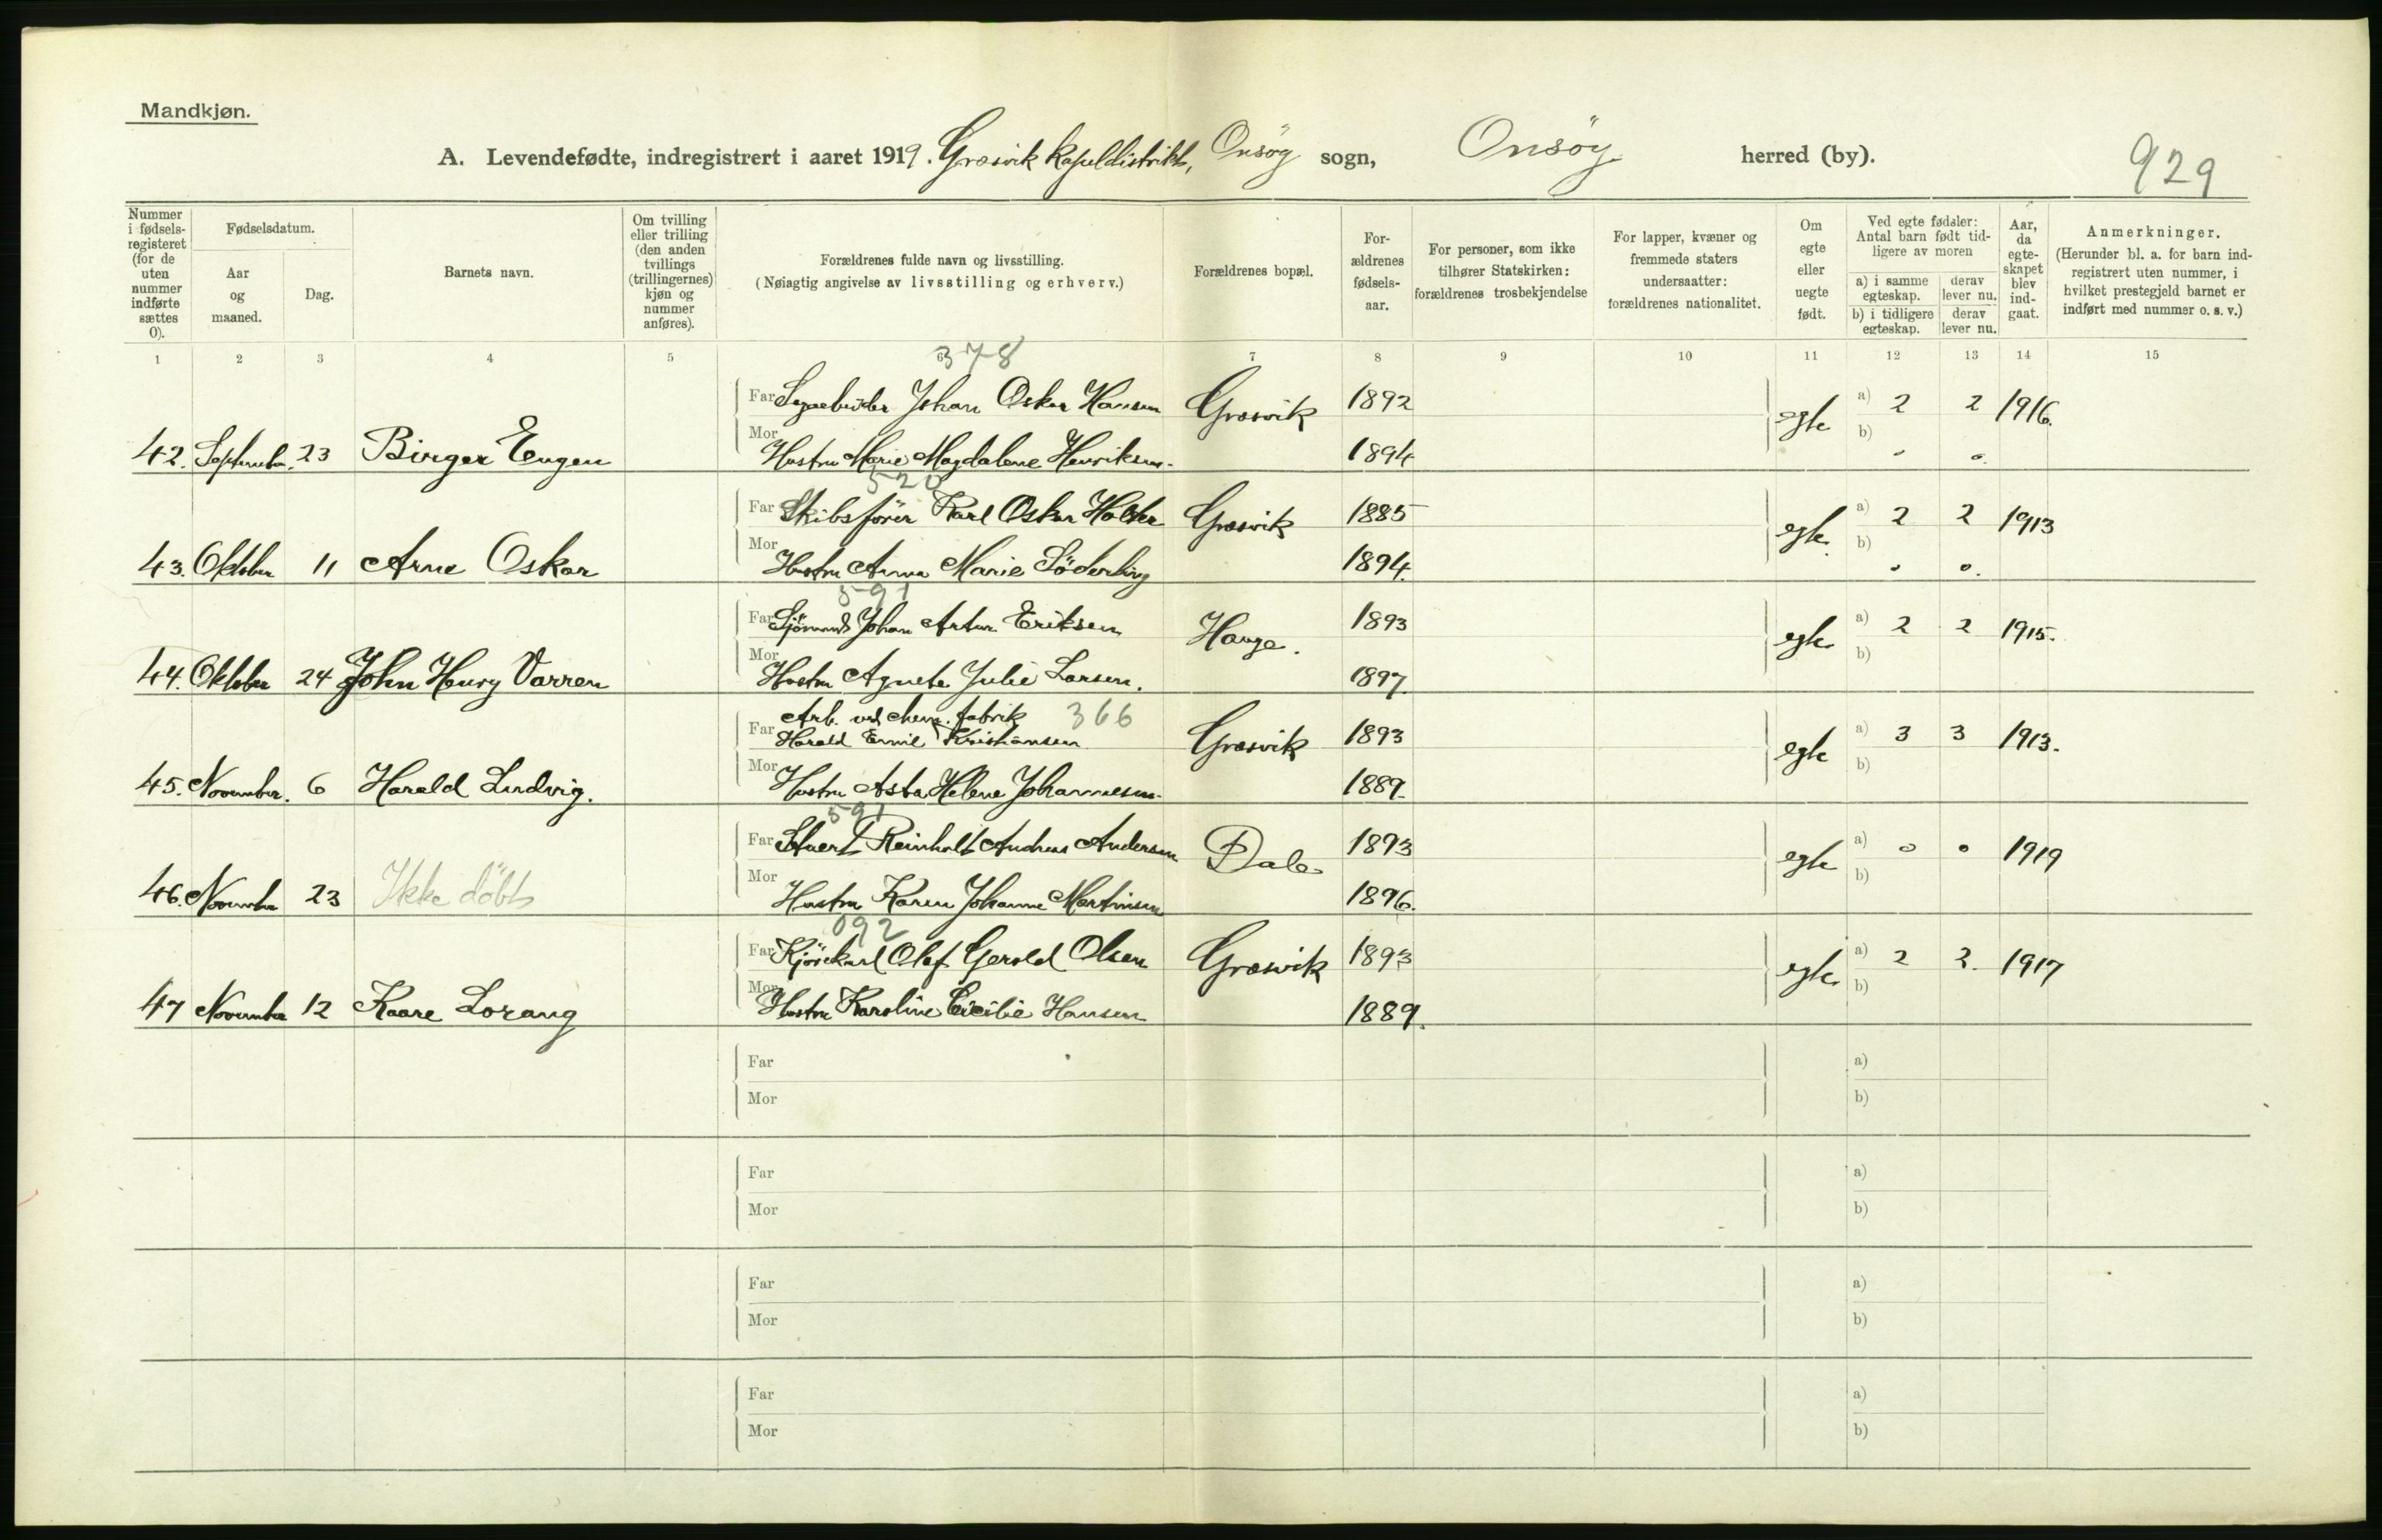 Mandkjøn.
A. Levendefødte, indregistrert i aaret 1919. Græsvik kapeldistrikt, Onsöy sogn, Onsöy herred (by).
929
Nummer i fødsels-registeret (for de uten nummer indførte sættes 0).
Fødselsdatum.
Aar og maaned.
Dag.
Barnets navn.
Om tvilling eller trilling (den anden tvillings (trillingernes) kjøn og nummer anføres).
Forældrenes fulde navn og livsstilling.
(Nøiagtig angivelse av livsstilling og erhverv.)
Forældrenes bopæl.
For-ældrenes fødsels-aar.
For personer, som ikke tilhører Statskirken: forældrenes trosbekjendelse
For lapper, kvæner og fremmede staters undersaatter: forældrenes nationalitet.
Om egte eller uegte født.
Ved egte fødsler: Antal barn født tid-ligere av moren
a) i samme egteskap. derav lever nu.
b) i tidligere egteskap. derav lever nu.
Aar, da egte-skapet blev ind-gaat.
Anmerkninger.
(Herunder bl. a. for barn ind-registrert uten nummer, i hvilket prestegjeld barnet er indført med nummer o. s. v.)
1 2 3 4 5 6 7 8 9 10 11 12 13 14 15
378
Far Johan Oskar Hansen Græsvik 1892 egte a) 2 2 1916.
42. September. 23 Birger Eugen Mor Hustru Marie Magdalene Henriksen. 1894 b) " 0.
520
Far Skibsförer Karl Oskar Holter Græsvik 1885 egte. a) 2 2 1913
43. Oktober 11 Arne Oskar Mor Hustru Anna Marie Söderling 1894. b) " 0.
591
Far Sjömand Johan Artur Eriksen Hauge. 1893 egte a) 2 2 1915.
44. Oktober 24 John Henry Varren Mor Hustru Agnete Julie Larsen. 1897. b)
Arb. ved chem. fabrik 366
Far Harald Emil Kristiansen Græsvik 1893 egte a) 3 3 1913.
45. November. 6 Harald Ludvig. Mor Hustru Asta Helene Johannesen. 1889. b)
591
Far Stuert Reinholt Andreas Andersen Dale 1893 egte a) 0 0 1919
46. November 23 Ikke döbt Mor Hustru Karen Johanne Martinsen 1896. b)
092
Far Kjörekarl Olaf Gerold Olsen Græsvik 1893 egte a) 2 2. 1917
47 November 12 Kaare Lorang Mor Hustru Karoline Cicilie Hansen 1889. b)
Far a)
Mor b)
Far a)
Mor b)
Far a)
Mor b)
Far a)
Mor b)